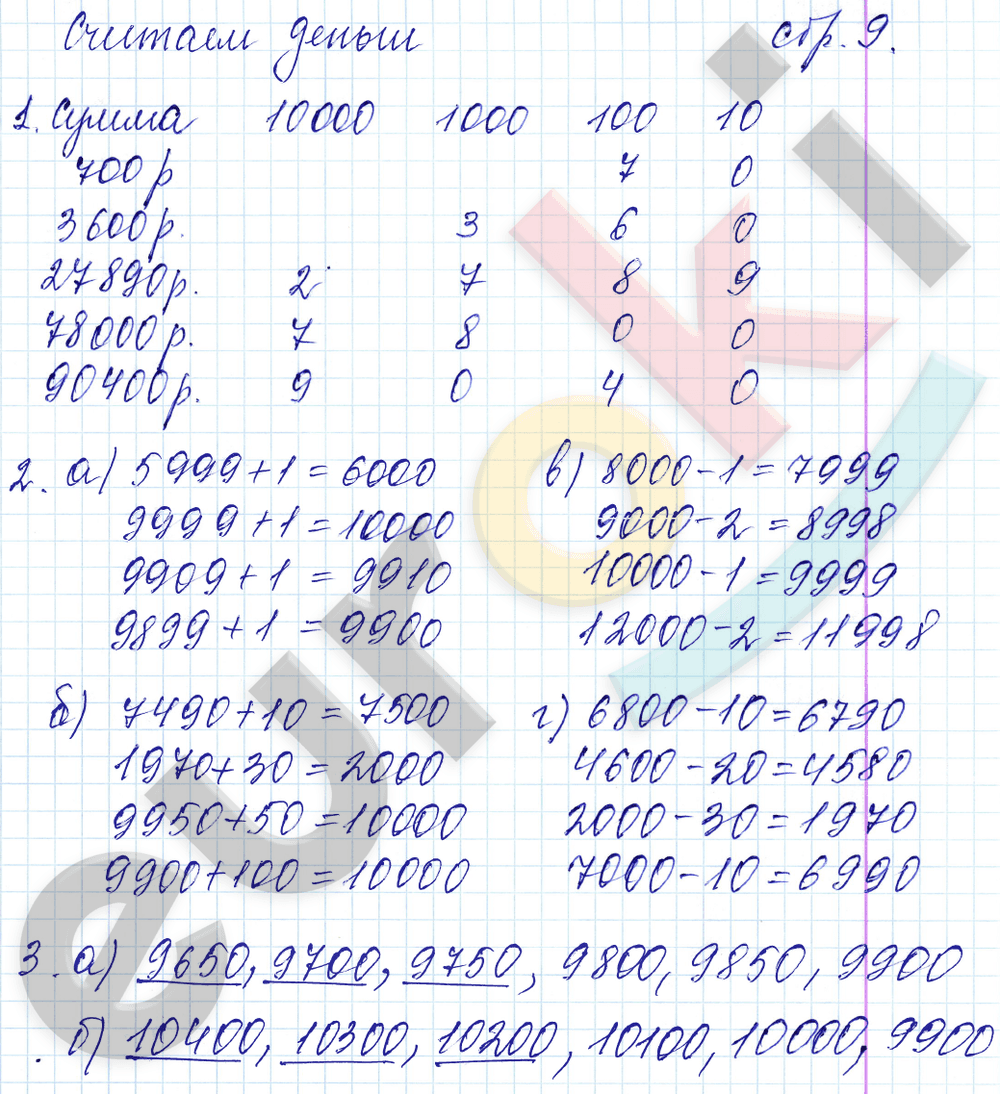 Считаем деньги стр. 9.
1. Сумма 10000 1000 100 10
700 р 7 0
3600 р. 3 6 0
27890 р. 2 7 8 9
78000 р. 7 8 0 0
90400 р. 9 0 4 0
2. а) 5999 + 1 = 6000
9999 + 1 = 10000
9909 + 1 = 9910
9899 + 1 = 9900
в) 8000 - 1 = 7999
9000 - 2 = 8998
10000 - 1 = 9999
12000 - 2 = 11998
б) 7490 + 10 = 7500
1970 + 30 = 2000
9950 + 50 = 10000
9900 + 100 = 10000
г) 6800 - 10 = 6790
4600 - 20 = 4580
2000 - 30 = 1970
7000 - 10 = 6990
3. а) 9650, 9700, 9750, 9800, 9850, 9900
. б) 10400, 10300, 10200, 10100, 10000, 9900
euroki